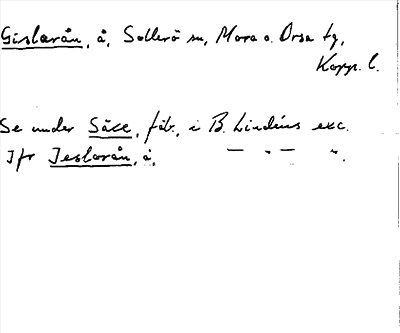 Gislarån, å, Sollerö sn, Mora o. Orsa tg,
Kopp. l.
Se under Säce, fäb., i B. Lindéns exc.
Jfr Jeslarån, å, — „ — „.